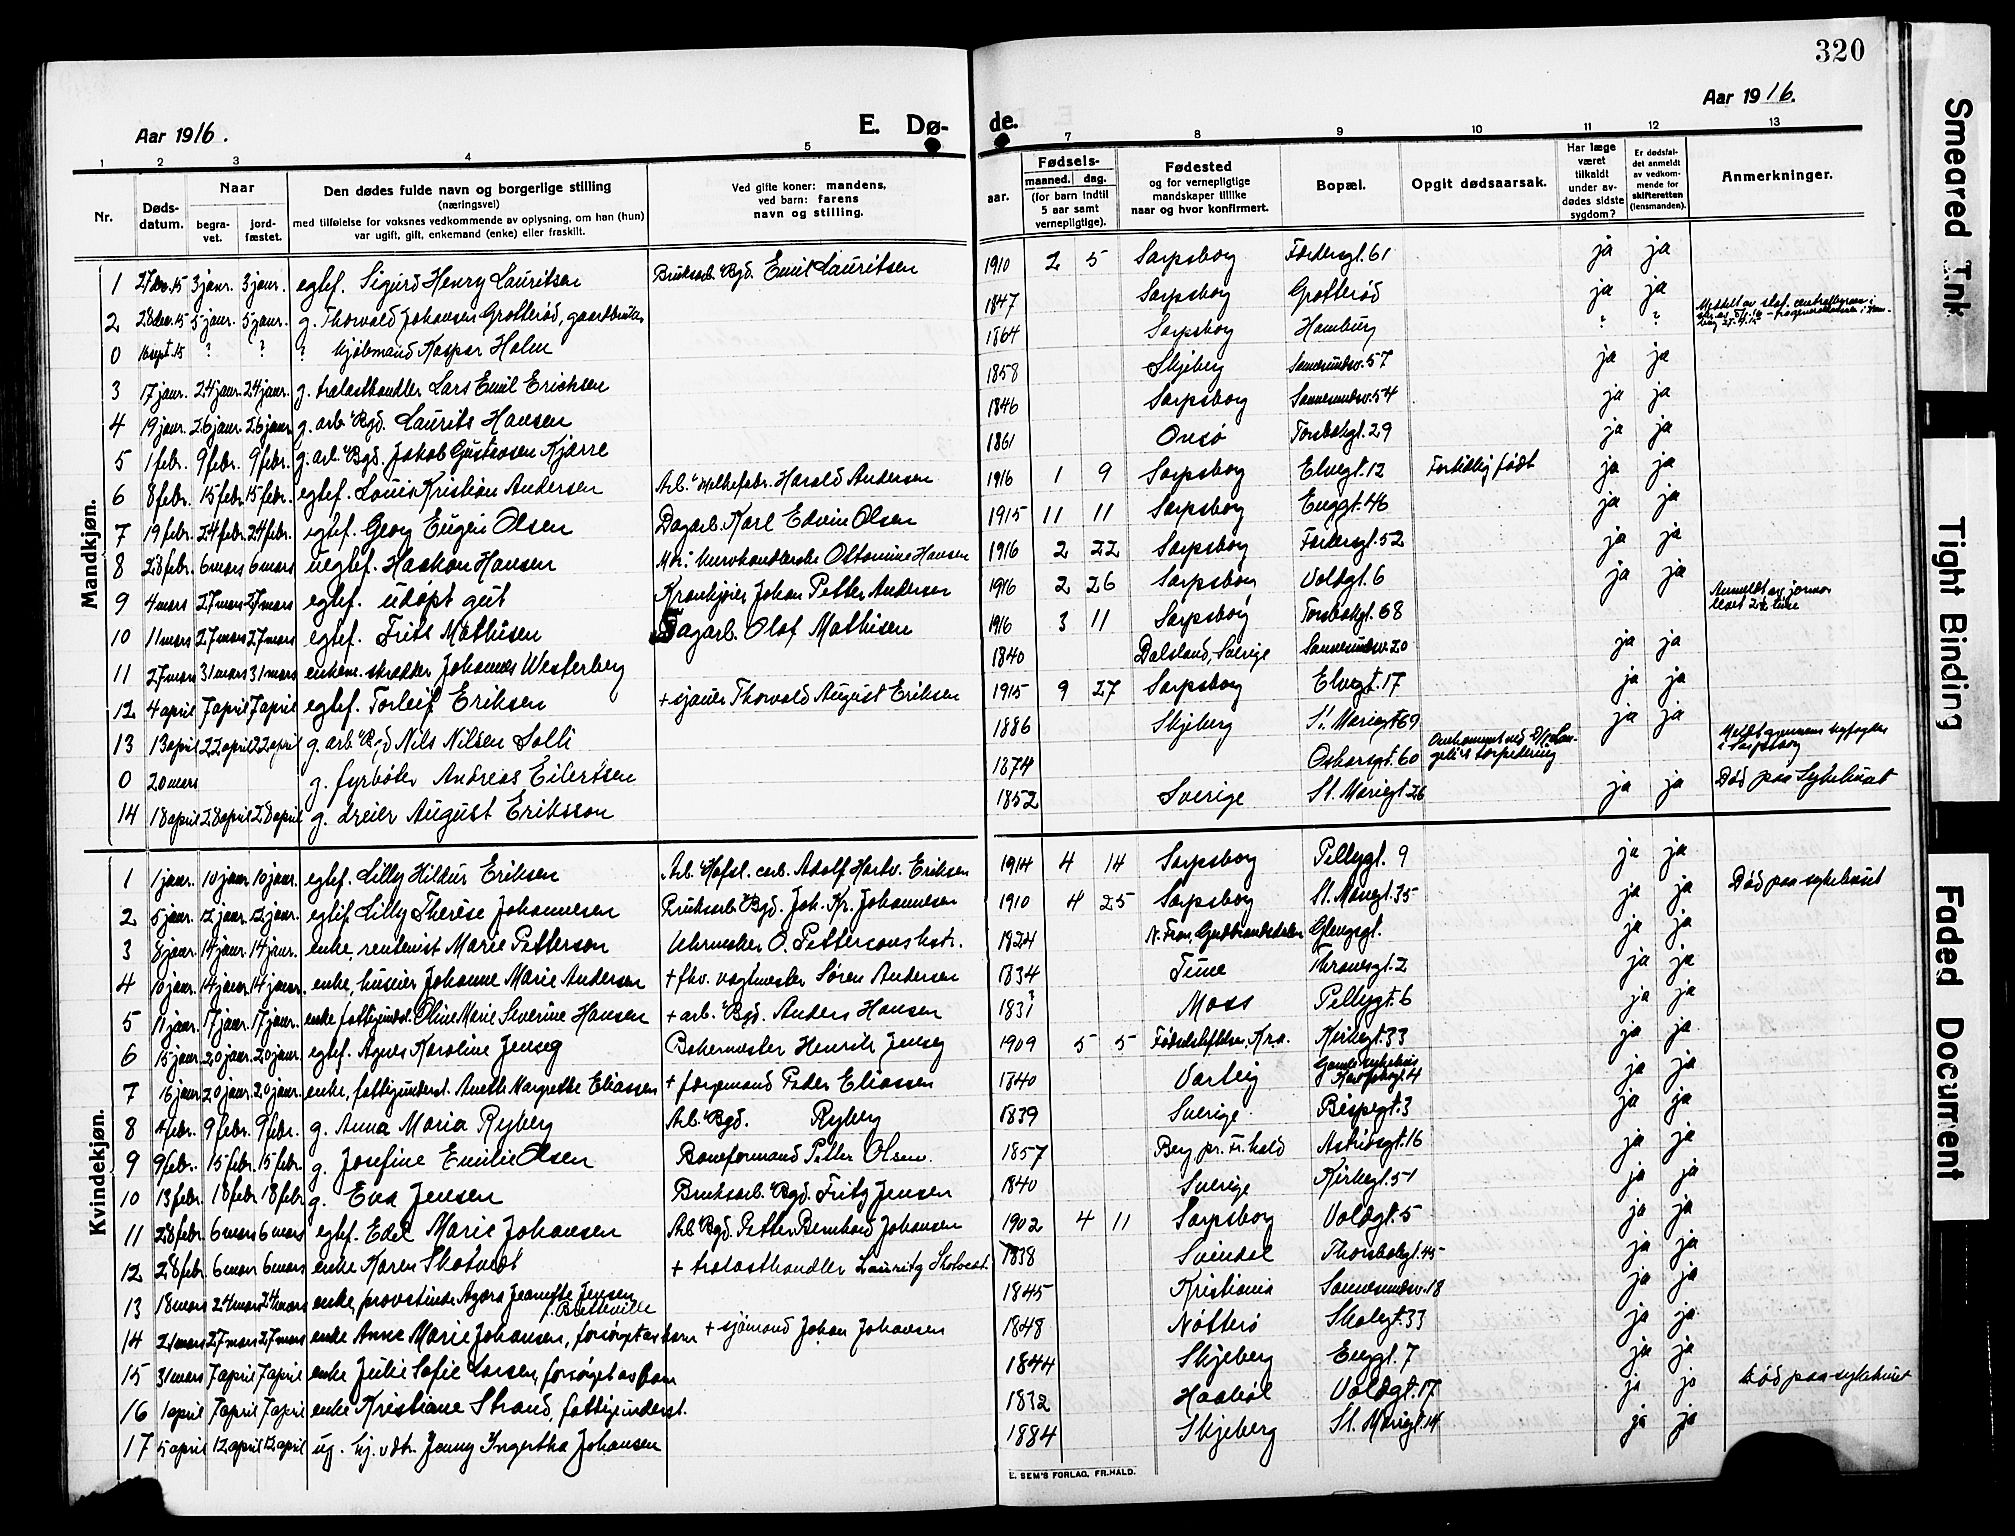 320
Aar 1916.
E. Dø-
de.
Aar 1916.
1 2 3 4 5 7 8 9 10 11 12 13
Nr.
Døds-
datum.
Naar
begra-
vet.
jord-
fæstet.
Den dødes fulde navn og borgerlige stilling
(næringsvei)
med tilføielse for voksnes vedkommende av oplysning, om han (hun)
var ugift, gift, enkemand (enke) eller fraskilt.
Ved gifte koner: mandens,
ved barn: farens
navn og stilling.
Fødsels-
aar.
maaned. dag.
(for barn indtil
5 aar samt
vernepligtige).
Fødested
og for vernepligtige
mandskaper tillike
naar og hvor konfirmert.
Bopæl.
Opgit dødsaarsak.
Har læge
været
tilkaldt
under av-
dødes sidste
sygdom?
Er dødsfal-
det anmeldt
av vedkom-
mende for
skifteretten
(lensmanden).
Anmerkninger.
Mandkjøn.
1 27 des. 15 3 janr. 3 janr. egtef. Sigurd Henry Lauritsen Bruksarb. Bgd. Emil Lauritsen 1910 2 5 Sarpsborg Fordersgt. 61 ja ja
2 28 des. 15 5 janr. 5 janr. g. Thorvald Johansen Grotterød, gaardbruker 1847 Sarpsborg Grotterød ja ja
0 16 sept. 15 ? ? ? kjøbmand Kaspar Holm 1864 Sarpsborg Hamburg ? ?
3 17 janr. 24 janr. 24 janr. g. trælasthandler Lars Emil Erichsen 1858 Skjeberg Sannesundsv. 57 ja ja
4 19 janr. 26 janr. 26 janr. g. arb. Bgd. Laurits Hansen 1846 Sarpsborg Sannesundsv. 54 ja ja
5 1 febr. 9 febr. 9 febr. g. arb. Bgd. Jakob Gustavsen Kjærre 1861 Onsø Torsbekgt. 29 ja ja
6 8 febr. 15 febr. 15 febr. egtef. Louis Kristian Andersen Arb. Melkefabr. Harald Andersen 1916 1 9 Sarpsborg Elvegt. 12 Fortidlig født ja ja
7 19 febr. 24 febr. 24 febr. egtef. Georg Eugen Olsen Dagarb. Karl Edvin Olsen 1915 11 11 Sarpsborg Enggt. 46 ja ja
8 28 febr. 6 mars 6 mars uegtef. Haakon Hansen Mor: kurvhandlerske Ottomine Hansen 1916 2 22 Sarpsborg Fordersgt. 52 ja ja
9 4 mars 27 mars 27 mars egtef. udøpt gut Krankjører Johan Petter Andersen 1916 2 26 Sarpsborg Voldgt. 6 ja ja
Anmeldt av jormor
10 11 mars 27 mars 27 mars egtef. Frits Mathisen Dagarb. Olaf Mathisen 1916 3 11 Sarpsborg Torsbekgt. 68
11 27 mars 31 mars 31 mars enkem. skrædder Johannes Westerberg 1840 Dalsland, Sverige Sannesundsv. 20 ja ja
12 4 april 7 april 7 april egtef. Torleif Eriksen + sjauer Thorvald August Eriksen 1915 9 27 Sarpsborg Elvegt. 17 ja ja
13 13 april 22 april 22 april g. arb. Bgd Nils Nilsen Solli 1886 Skjeberg St. Mariegt. 69 ja ja
0 20 mars g. fyrbøter Andreas Eilertsen 1874 Oskarsgt. 60 Omkommet ved D/S Lan-
geli's torpedering
Meldt gjennem byfogden
i Sarpsborg
14 18 april 28 april 28 april g. dreier August Eriksson 1852 Sverige St. Mariegt. 26 ja ja Død paa Sykehuset
Kvindekjøn.
1 1 janr. 10 janr. 10 janr. egtef. Lilly Hildur Eriksen Arb. Hafsl. carb. Adolf Hartv. Eriksen 1914 4 14 Sarpsborg Pellygt. 9 ja ja
2 5 janr. 12 janr. 12 janr. egtef. Lilly Therese Johannesen Bruksarb. Bgd. Joh. Kr. Johannesen 1910 4 25 Sarpsborg St. Mariegt. 35 ja ja Død paa sykehuset
3 8 janr. 14 janr. 14 janr. enke, rentenist Marie Petterson Uhrmaker O. Petterssons 1824 N. Fron, Gudbrandsdalen Glengsgt. ja ja
4 10 janr. 14 janr. 14 janr. enke, huseier Johanne Marie Andersen + fhv. vagtmester Søren Andersen 1834 Tune Thronesgt. 2 ja ja
5 11 janr. 17 janr. 17 janr. enke fattigunderst. Oline Marie Severine Hansen + arb. Bgd. Anders Hansen 1831 ? Moss Pellygt. 6 ja ja
6 15 janr. 20 janr. 20 janr. egtef. Agnes Karoline Jenseg Bakermester Henrik Jenseg 1909 5 5 Fødselsstiftelsen, Kra. Kirkegt. 33 ja ja
7 16 janr. 20 janr. 20 janr. enke, fattigunderst. Anette Margrethe Eliassen + færgemand Peder Eliassen 1840 Varteig Gamle sykehus
Korsgt. 4 ja ja
8 4 febr. 9 febr. 9 febr. g. Anna Maria Ryberg Arb. Bgd. Ryberg 1839 Sverige. Bispegt. 3 ja ja
9 9 febr. 15 febr. 15 febr. g. Josefine Emilie Olsen Baneformand Petter Olsen. 1857 Berg pr. Fr.hald Astridsgt. 16 ja ja
10 13 febr. 18 febr. 18 febr g. Eva Jensen Bruksarb. Bgd. Fritz Jensen 1840 Sverige Kirkegt. 51 ja ja
11 28 febr. 6 mars 6 mars egtef. Edel Marie Johansen Arb. Bgd. Petter Bernhard Johansen 1902 4 11 Sarpsborg Voldgt. 5 ja ja
12 28 febr. 6 mars 6 mars enke Karen Skotvedt + trælasthandler Lauritz Skotvedt. 1838 Svindal Thorsbekgt. 45 ja ja
13 18 mars 24 mars 24 mars enke, provstinde Agora Jeanette Jensen
f. Bretteville 1845 Kristiania Sannesundsv. 18 ja ja
14 21 mars 27 mars 27 mars enke Anne Marie Johansen, forsørget av barn + sjømand Johan Johansen 1848 Nøtterø Skolegt. 33 ja ja
15 31 mars 7 april 7 april enke Julie Sofie Larsen, forsørget av barn 1844 Skjeberg Enggt. 7 ja ja
16 1 april 7 april 7 april enke Kristiane Strand, fattigunderst. 1832 Haabøl Voldgt. 17 ja ja Død paa sykehuset
17 5 april 12 april 12 april ug. hj.v.dtr. Jenny Ingertha Johansen 1884 Skjeberg St. Mariegt. 14 ja ja
E. SEM'S FORLAG, FR.HALD.
Smeared Ink
Tight Binding
Faded Document